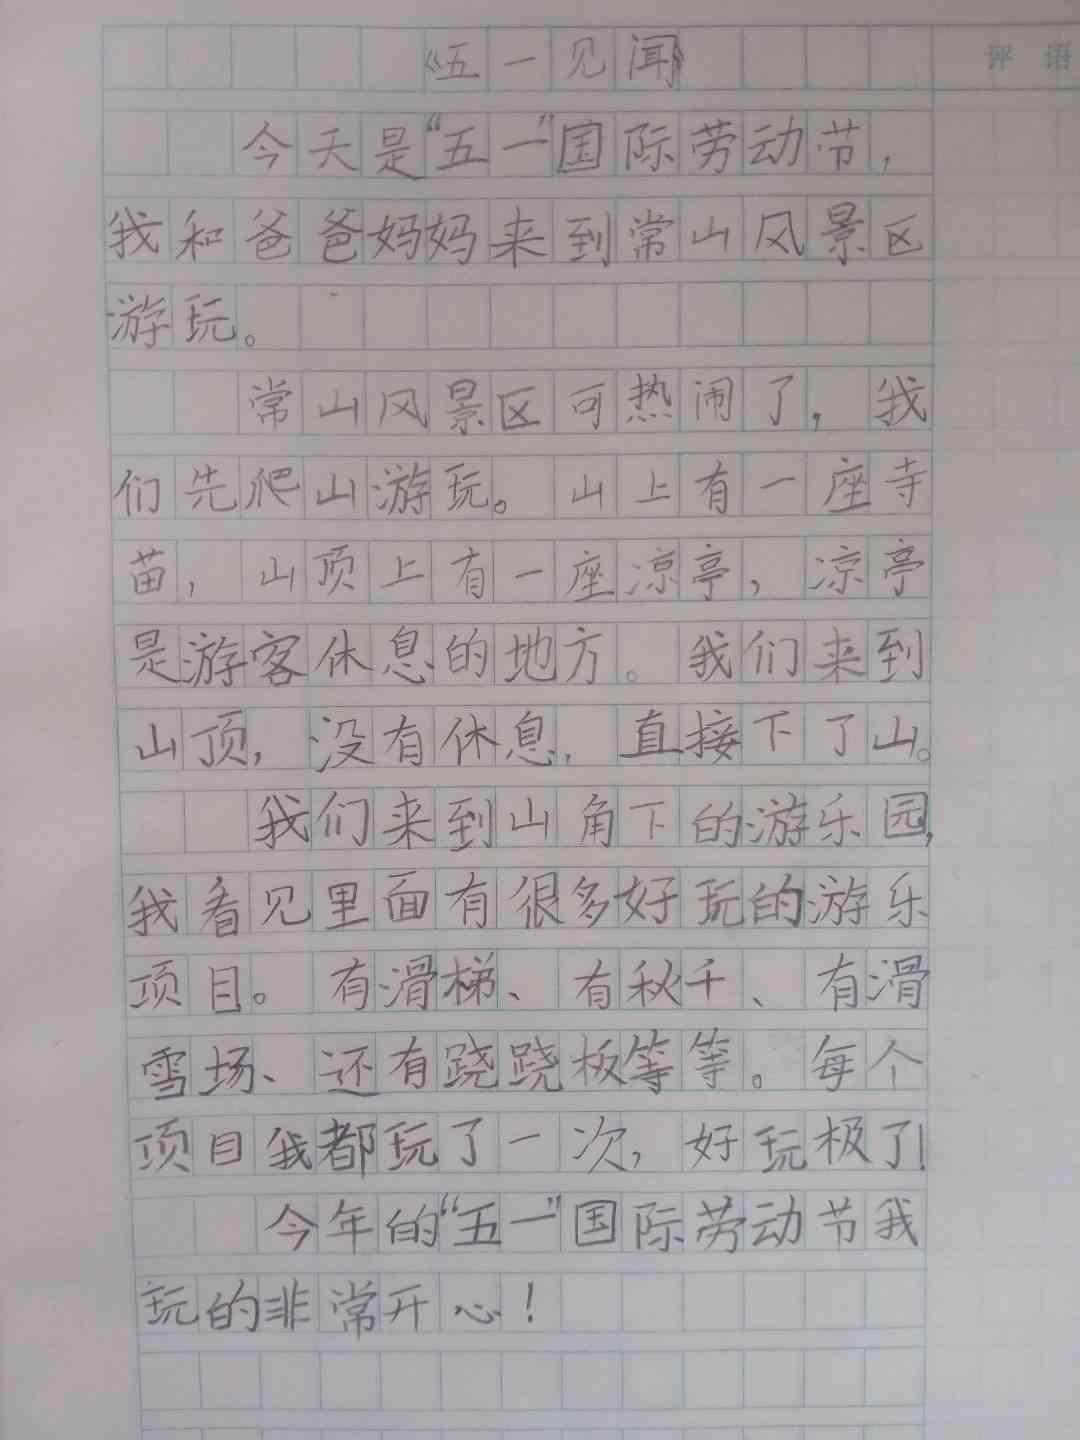 评语
《五一见闻》
今天是“五一”国际劳动节，
我和爸爸妈妈来到常山风景区
游玩。
常山风景区可热闹了，我
们先爬山游玩。山上有一座寺
苗，山顶上有一座凉亭，凉亭
是游客休息的地方。我们来到
山顶，没有休息，直接下了山。
我们来到山角下的游乐园，
我看见里面有很多好玩的游乐
项目。有滑梯、有秋千、有滑
雪场、还有跷跷板等等。每个
项目我都玩了一次，好玩极了！
今年的“五一”国际劳动节我
玩的非常开心！